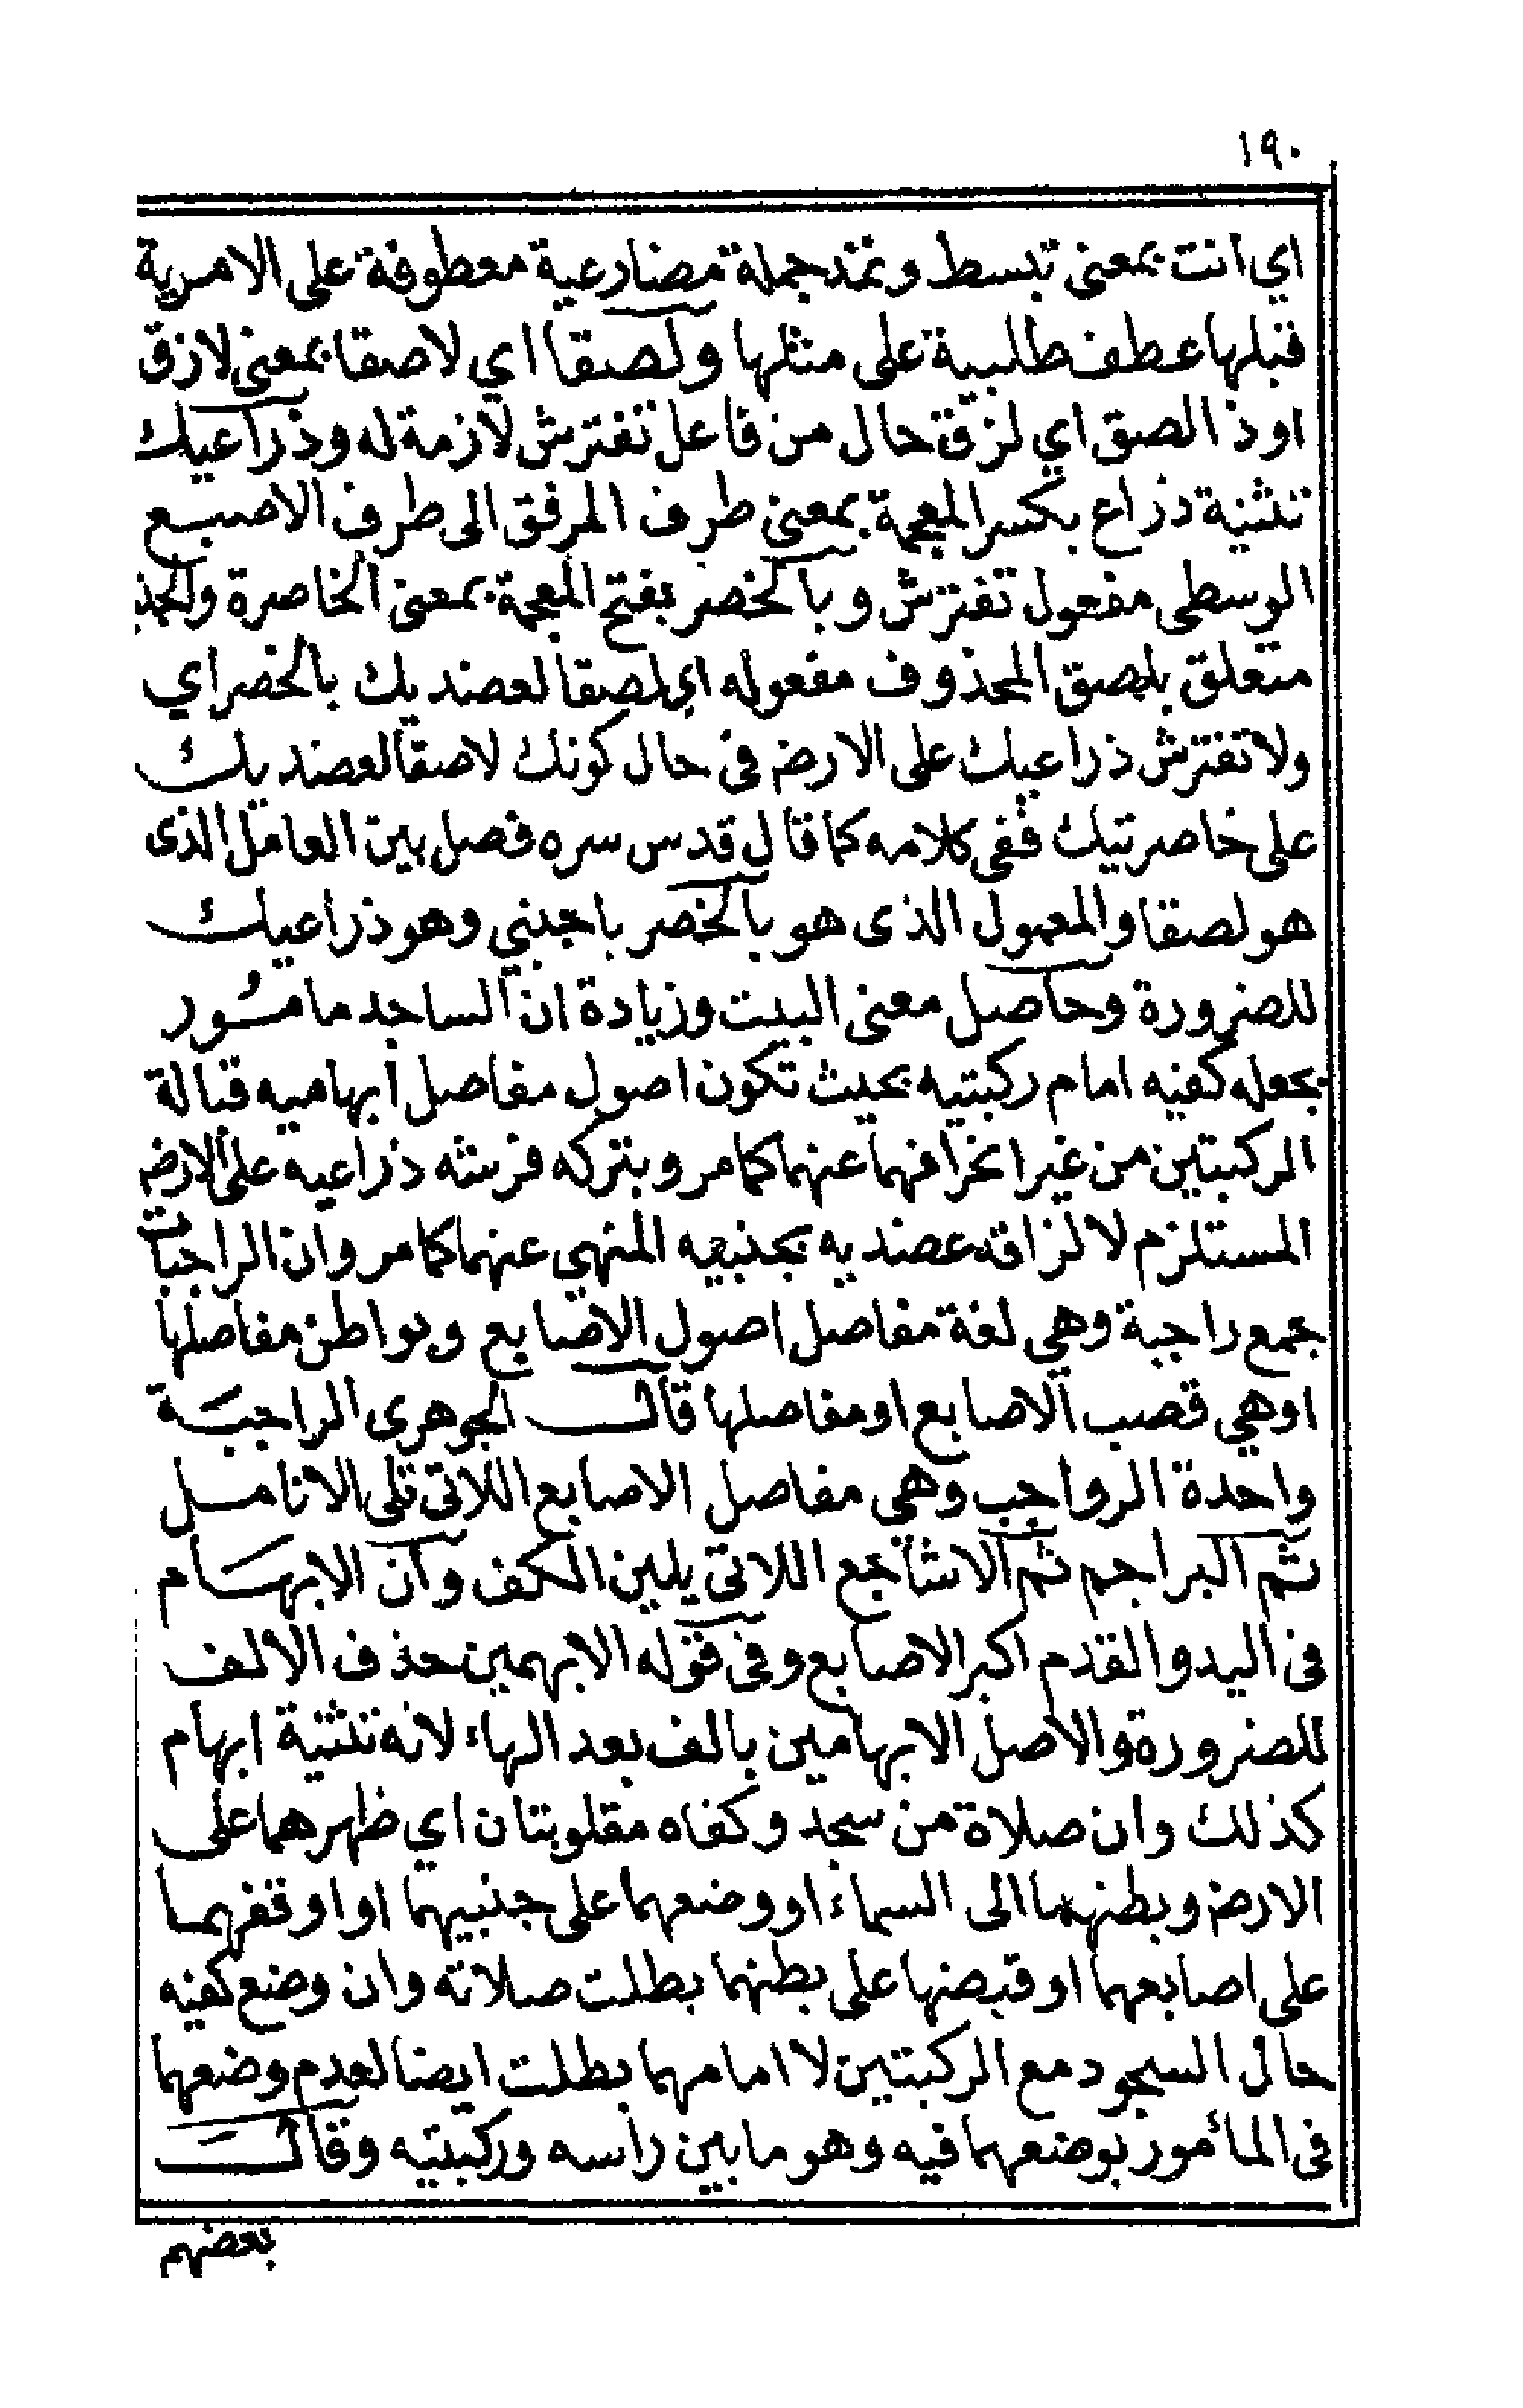 ١٩٠
اي انت بمعنى تبسط وتمد جملة مضارعية معطوفة على الامرية
قبلها عطف طلبية على مثلها ولصقا اي لاصقا بمعنى لازق
او ذا لصق اي لزق حال من فاعل تفترش لازمة له وذراعيك
تثنية ذراع بكسر المعجمة بمعنى طرف المرفق الى طرف الاصبع
الوسطى مفعول تفترش وبالخصر بفتح المعجمة بمعنى الخاصرة والجنب
متعلق بلصق المحذوف مفعوله اي لصقا لعضديك بالخصر اي
ولا تفترش ذراعيك على الارض في حال كونك لاصقا لعضديك
على خاصرتيك ففي كلامه كما قال قدس سره فصل بين العامل الذى
هو لصقا والمعمول الذى هو بالخصر باجنبي وهو ذراعيك
للضرورة وحاصل معنى البيت وزيادة ان الساجد مامئور
بجعله كفيه امام ركبتيه بحيث تكون اصول مفاصل ابهاميه قبالة
الركبتين من غير انحرافهما عنهما كما مر وبتركه فرشه ذراعيه على الارض
المستلزم لالزاقه عضديه بجنبيه المنهي عنهما كما مر وان الراجبات
جمع راجبة وهي لغة مفاصل اصول الاصابع وبواطن مفاصلها
او هي قصب الاصابع او مفاصلها قال الجوهرى الراجبة
واحدة الرواجب وهي مفاصل الاصابع اللاتى تلى الانامل
ثم البراجم ثم الاشاجع اللاتى يلين الكف وان الابهام
فى اليد والقدم اكبر الاصابع وفى قوله الابهمين حذف الالف
للضرورة والاصل الابهامين بالف بعد الهاء لانه تثنية ابهام
كذلك وان صلاة من سجد وكفاه مقلوبتان اي ظهرهما على
الارض وبطنهما الى السماء او وضعهما على جنبيهما او اوقفهما
على اصابعهما او قبضها على بطنهما بطلت صلاته وان وضع كفيه
حال السجود مع الركبتين لا امامهما بطلت ايضا لعدم وضعهما
فى المأمور بوضعهما فيه وهو ما بين راسه وركبتيه وقال
بعضهم